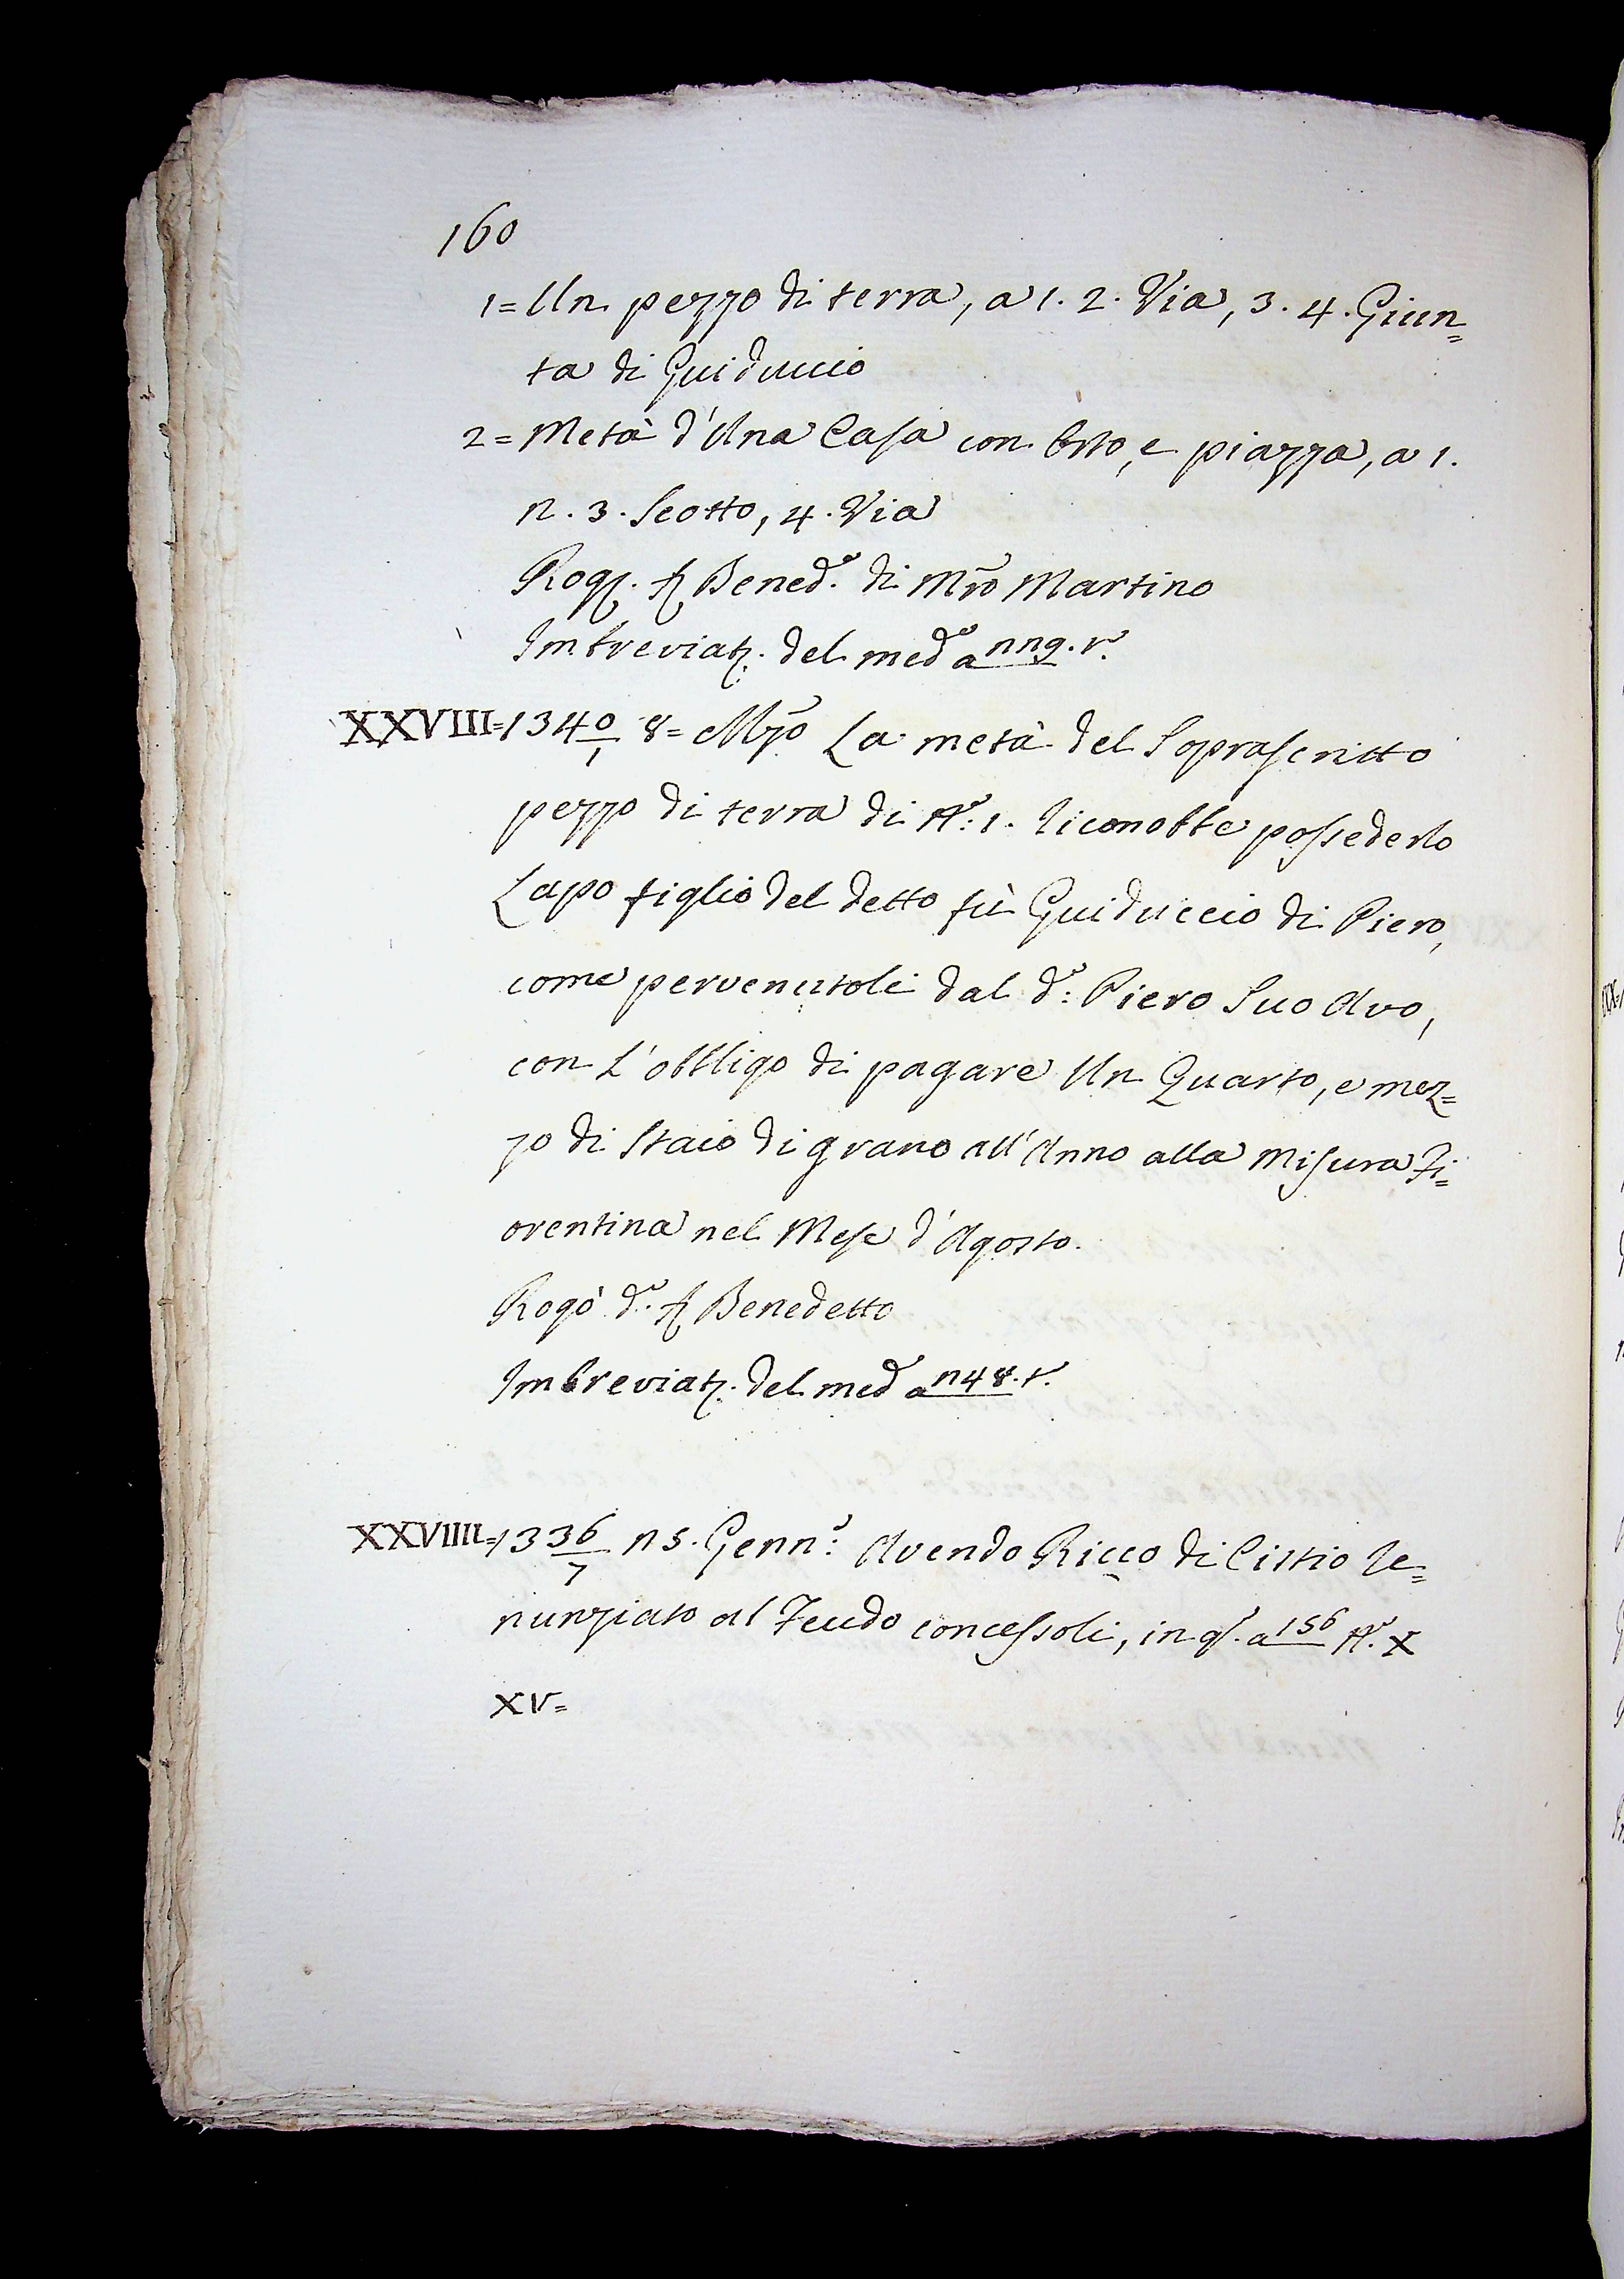 160
1= Un pezzo di terra, a 1. 2. Via, 3. 4. Giun=
ta di Guiduccio
2= Metà d'Una Casa con Orto, e piazza, a 1.
2. 3. Scotto, 4. Via
Rog. Bened.º di Mrõ Martino
Imbreviaz. del med.º a 229. r.
XXVIII= 1340/1 8= Mzõ La metà del Soprascritto
pezzo di terra di N.º: 1. riconobbe possederlo
Lapo figlio del detto fù Guiduccio di Piero,
come pervenutoli dal d.º: Piero Suo Avo,
con L'obbligo di pagare Un Quarto, e mez=
zo di Staio di grano all'Anno alla Misura Fi=
orentina nel Mese d'Agosto.
Rogò d.º Benedetto
Imbreviaz. del med.º a 248. r.
XXVIIII= 1336/7 25. Genn.º: Avendo Ricco di Cistio Re=
nunziato al Feudo concessoli, in q. a 156 N.º X
XV=